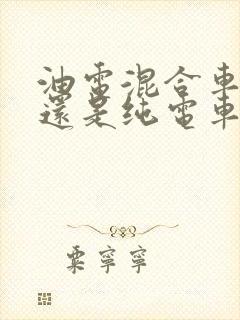 油電混合車
還是純電車
粟寧寧